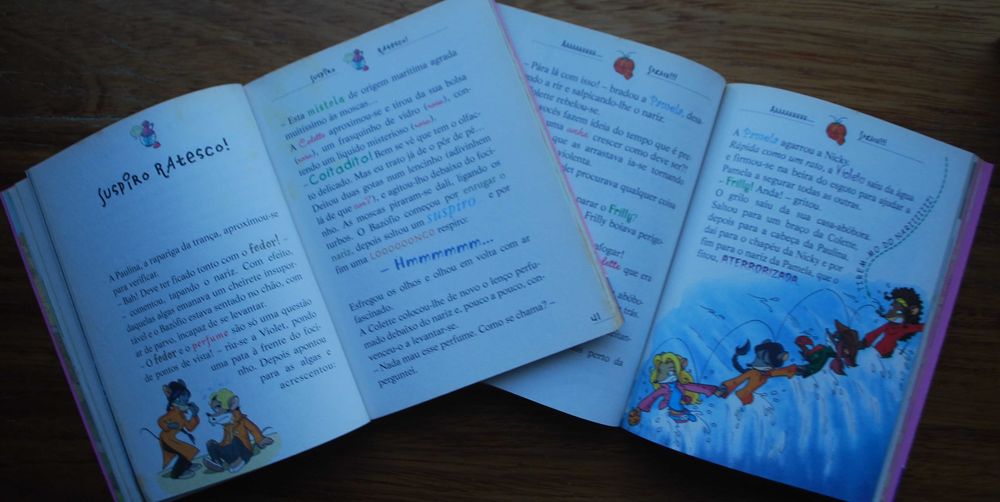 SUSPIRO RATESCO!
A Paulina, a rapariga da trança, aproximou-se
para verificar.
– Bah! Deve ter ficado tonto com o fedor! –
– comentou, tapando o nariz. Com efeito,
daquelas algas emanava um cheirete insupor-
tável e o Bazófio estava sentado no chão, com
ar de parvo, incapaz de se levantar.
– O fedor e o perfume são só uma questão
de pontos de vista! – riu-se a Violet, pondo
uma pata à frente do foci-
nho. Depois apontou
para as algas e
acrescentou:
SUSPIRO RATESCO!
– Esta mistela de origem marítima agrada
muitíssimo às moscas...
A Colette aproximou-se e tirou da sua bolsa
(rosa), um frasquinho de vidro (rosa), con-
tendo um líquido misterioso (rosa).
– Coitadito! Bem se vê que tem o olfac-
to delicado. Mas eu trato já de o pôr de pé...
Deitou duas gotas num lencinho (adivinhem
lá de que cor?), e agitou-lho debaixo do foci-
nho. As moscas piraram-se dali, ligando os
turbos. O Bazófio começou por enrugar o
nariz, depois soltou um suspiro e por
fim uma LOOOOONGO respiro:
– Hmmmmmm...
Esfregou os olhos e olhou em volta com ar
fascinado.
A Colette colocou-lhe de novo o lenço perfu-
mado debaixo do nariz e, pouco a pouco, con-
venceu-o a levantar-se.
– Nada mau esse perfume. Como se chama? –
perguntei.
41
– Pára lá com isso! – bradou a Pamela, desa-
ndo a rir e salpicando-lhe o nariz.
olette rebelou-se.
vocês fazem ideia do tempo que é pre-
uma unha crescer como deve ser?!
que as arrastava ia-se tornando
violenta.
der procurava qualquer coisa
parar o Frilly?
Frilly boiava perigo-
fogar!
lette que era
perto da
A Pamela agarrou a Nicky.
Rápida como um rato, a Violet saiu da água
e firmou-se na beira do esgoto para ajudar a
Pamela a segurar todas as outras.
– Frilly! Anda! – gritou.
O grilo saiu da sua casa-abóbora.
Saltou para um braço da Colette,
depois para a cabeça da Paulina,
daí para o chapéu da Nicky e por
fim para o nariz da Pamela, que o
fitou, ATERRORIZADA.